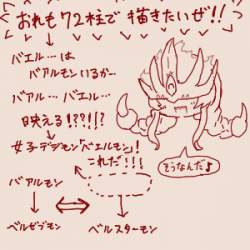 おれも72柱で描きたいぜ!!
バエル…は
バアルモンいるか…
バアル…バエル…
映える!??!?
女子デジモン「バエルモン」!
これだ!!!
そうなんだ♪
バアルモン
ベルゼブモン ⇔ ベルスターモン